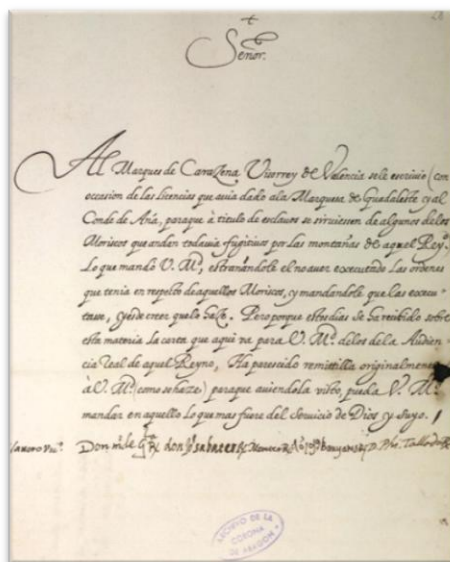 +
Señor.
Al Marques de Carazena Visorrey de Valencia se le escrivio (con
occasion de las licencias que avia dado a la Marquesa de Guadaleste y al
Conde de Aña, para que à titulo de esclavos se sirviessen de algunos de los
Moriscos que andan todavia fugitivos por las montañas de aquel Reyº.
Lo que mandó V. Mᵈ, estrañandole el no aver executado las ordenes
que tenia en respeto de aquellos Moriscos, y mandandole que las execu-
tasse, y es de creer que lo haze. Pero porque estos dias se ha recibido sobre
esta materia la carta que aqui va para V. Mᵈ. de los de la Audien-
cia Real de aquel Reyno, Ha parescido remitilla originalmente
à V. Mᵈ. (como se haze) para que aviendola visto, pueda V. Mᵈ.
mandar en aquello lo que mas fuere del Servicio de Dios y suyo.
Don
ARCHIVO DE LA
CORONA
DE ARAGON